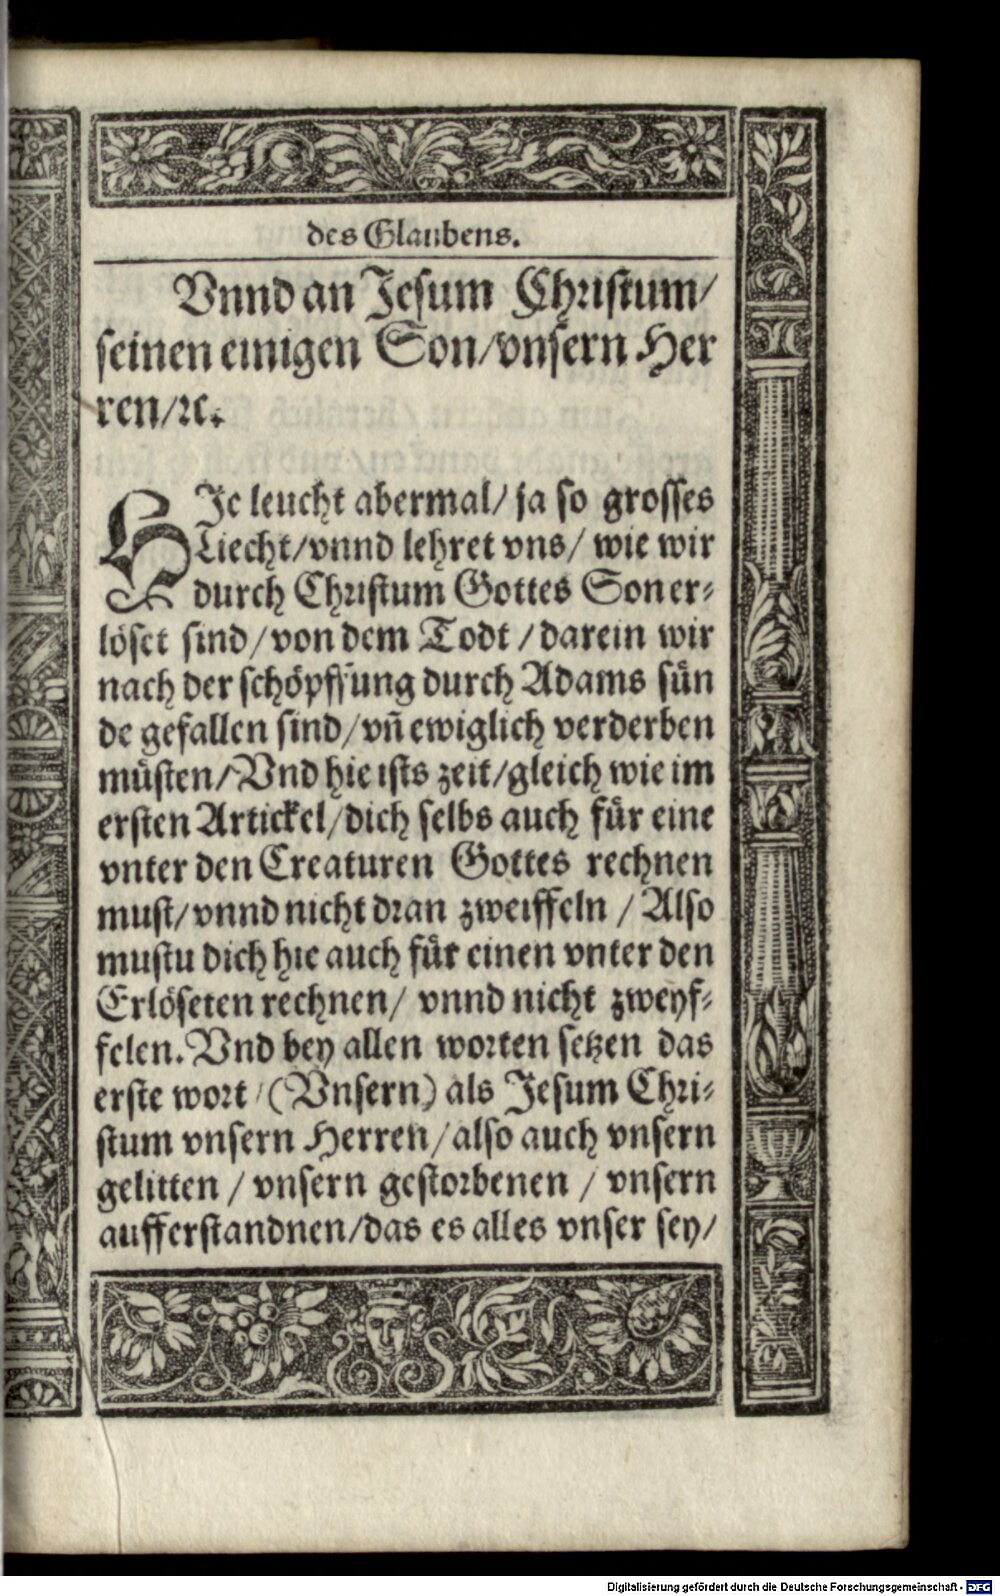 des Glaubens.
Vnnd an Jesum Christum/
seinen einigen Son/vnsern Her
ren/ꝛc.
HJe leucht abermal/ ja so grosses
Liecht/vnnd lehret vns/ wie wir
durch Christum Gottes Son er-
löset sind/von dem Todt/darein wir
nach der schöpffung durch Adams sün
de gefallen sind/vñ ewiglich verderben
müsten/Vnd hie ists zeit/gleich wie im
ersten Artickel/dich selbs auch für eine
vnter den Creaturen Gottes rechnen
must/vnnd nicht dran zweiffeln/ Also
mustu dich hie auch für einen vnter den
Erlöseten rechnen/ vnnd nicht zweyf-
felen. Vnd bey allen worten setzen das
erste wort/(Vnsern) als Jesum Chri-
stum vnsern Herren/also auch vnsern
gelitten/ vnsern gestorbenen/ vnsern
aufferstandnen/das es alles vnser sey/
Digitalisierung gefördert durch die Deutsche Forschungsgemeinschaft - DFG